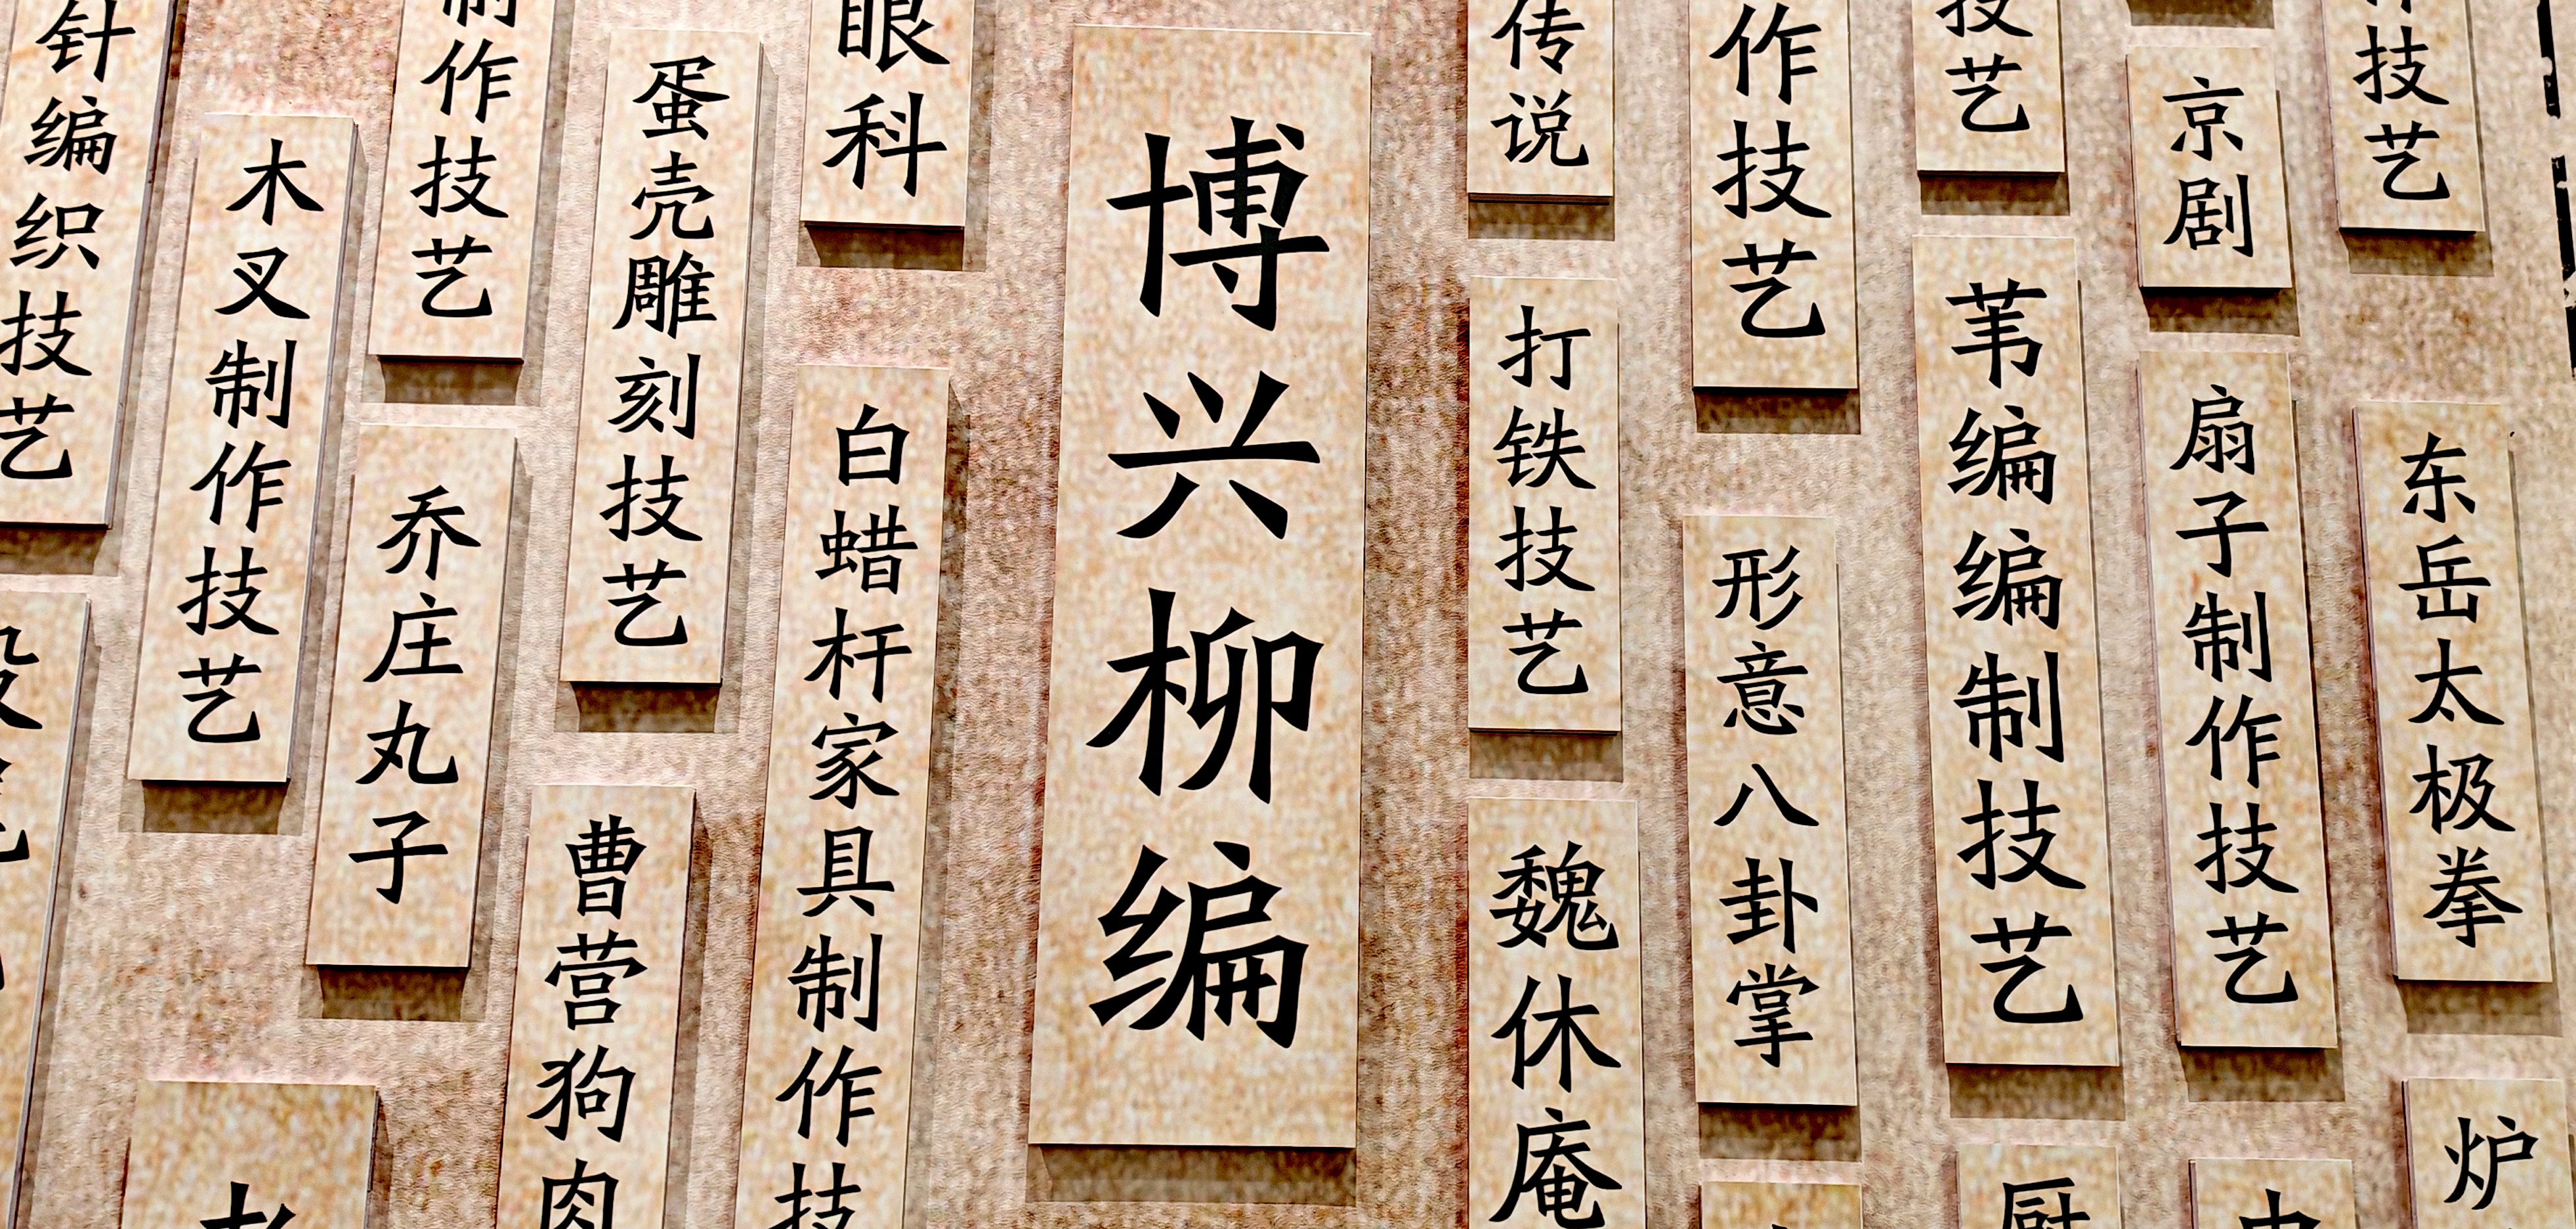 针编织技艺
木叉制作技艺
制作技艺
乔庄丸子
蛋壳雕刻技艺
曹营狗肉
眼科
白蜡杆家具制作技
博兴柳编
传说
打铁技艺
魏休庵
作技艺
形意八卦掌
技艺
苇编编制技艺
厨
京剧
扇子制作技艺
技艺
东岳太极拳
炉